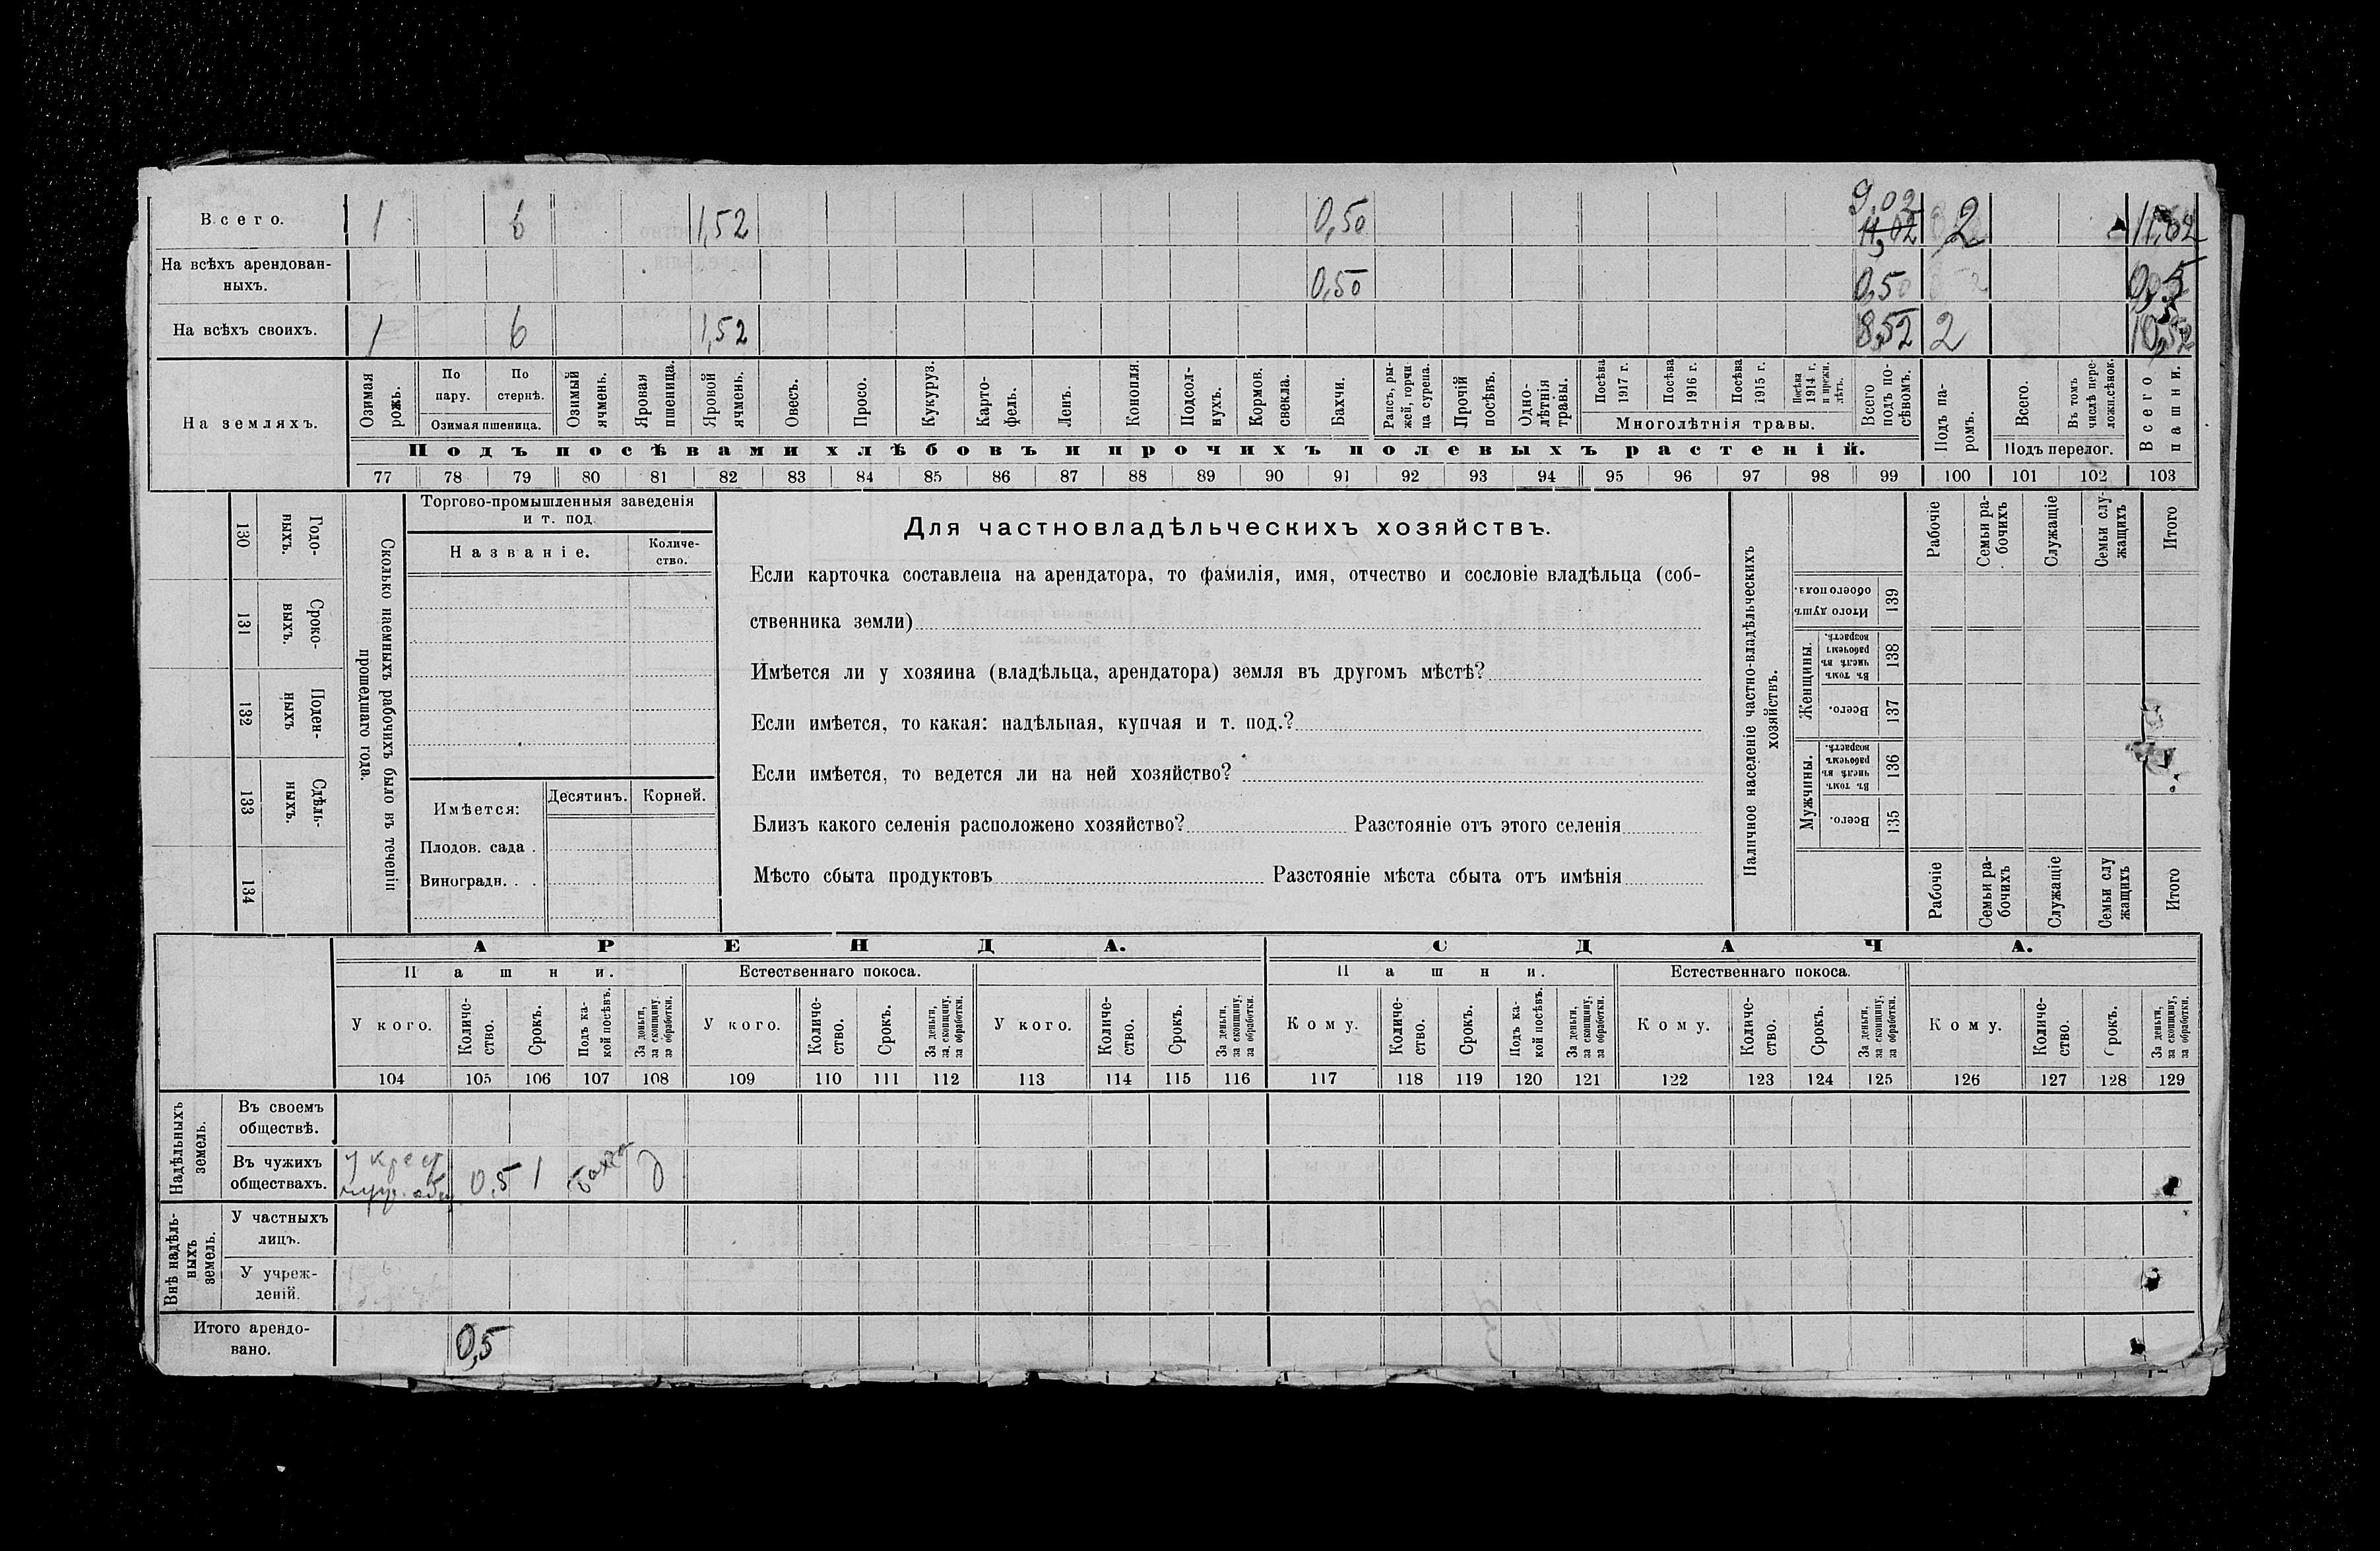 Всего. 1 6 1,52 0,50 9,02 11,02 2
На всѣхъ арендован-
ныхъ. 0,50 0,50 0,5
На всѣхъ своихъ. 1 6 1,52 8,52 2 10,52
На земляхъ.
Озимая рожь.
По пару.
По стернѣ.
Озимая пшеница.
Озимый ячмень.
Яровая пшеница.
Яровой ячмень.
Овесъ.
Просо.
Кукуруз.
Карто-
фель.
Ленъ.
Конопля
Подсол-
нухъ.
Кормов. свекла.
Бахчи.
Рапсъ, ры-
жей, горчи
ца сурепа.
Прочій посѣвъ.
Одно-
лѣтнія травы.
Посѣва 1917 г.
Посѣва 1916 г.
Посѣва 1915 г.
Посѣва 1914 г. и прежн. лѣтъ.
Многолѣтнія травы.
Всего подъ по-
сѣвомъ.
Подъ па-
ромъ.
Всего.
Въ томъ числѣ пере-
ложн. сѣнок.
Подъ перелог.
Всего пашни.
Подъ посѣвами хлѣбовъ и прочихъ полевыхъ растеній.
77 78 79 80 81 82 83 84 85 86 87 88 89 90 91 92 93 94 95 96 97 98 99 100 101 102 103
130 Годо-
ныхъ.
131 Сроко-
ныхъ.
132 Поден-
ныхъ
133 Сдѣль-
ныхъ.
134
Сколько наемныхъ рабочихъ было въ теченіи
прошедшаго года.
Торгово-промышленныя заведенія
и т. под.
Названіе.
Количе-
ство.
Имѣется: Десятинъ. Корней.
Плодов. сада .
Виноградн. . .
Для частновладѣльческихъ хозяйствъ.
Если карточка составлена на арендатора, то фамилія, имя, отчество и сословіе владѣльца (соб-
ственника земли)
Имѣется ли у хозяина (владѣльца, арендатора) земля въ другомъ мѣстѣ?
Если имѣется, то какая: надѣльная, купчая и т. под.?
Если имѣется, то ведется ли на ней хозяйство?
Близъ какого селенія расположено хозяйство? Разстояніе отъ этого селенія
Мѣсто сбыта продуктовъ Разстояніе мѣста сбыта отъ имѣнія
Наличное населеніе частно-владѣльческихъ
хозяйствъ.
Рабочіе
Семьи ра-
бочихъ
Служащіе
Семьи слу-
жащихъ
Итого
Итого душъ обоего пола. 139
Женщины.
Въ томъ числѣ въ рабочемъ возрастѣ. 138
Всего. 137
Мужчины.
Въ томъ числѣ въ рабочемъ возрастѣ. 136
Всего. 135
Рабочіе
Семьи ра-
бочихъ
Служащіе
Семьи слу
жащихъ
Итого
АРЕНДА. СДАЧА.
Пашни. Естественнаго покоса. Пашни. Естественнаго покоса.
У кого.
Количе-
ство.
Срокъ.
Подъ ка-
кой посѣвъ.
За деньги, за скопщину, за обработки.
У кого.
Количе-
ство.
Срокъ.
За деньги, за скопщину, за обработки.
У кого.
Количе-
ство.
Срокъ.
За деньги, за скопщину, за обработки.
Кому.
Количе-
ство.
Срокъ.
Подъ ка-
кой посѣвъ.
За деньги, за скопщину, за обработки.
Кому.
Количе-
ство.
Срокъ.
За деньги, за скопщину, за обработки.
Кому.
Количе-
ство.
Срокъ.
За деньги, за скопщину, за обработки.
104 105 106 107 108 109 110 111 112 113 114 115 116 117 118 119 120 121 122 123 124 125 126 127 128 129
Надѣльныхъ
земель.
Въ своемъ
обществѣ.
Въ чужихъ
обществахъ. у крест 0,5 1 бахча д
Внѣ надѣль-
ныхъ
земель.
У частныхъ
лицъ.
У учреж-
деній.
Итого арендо-
вано. 0,5